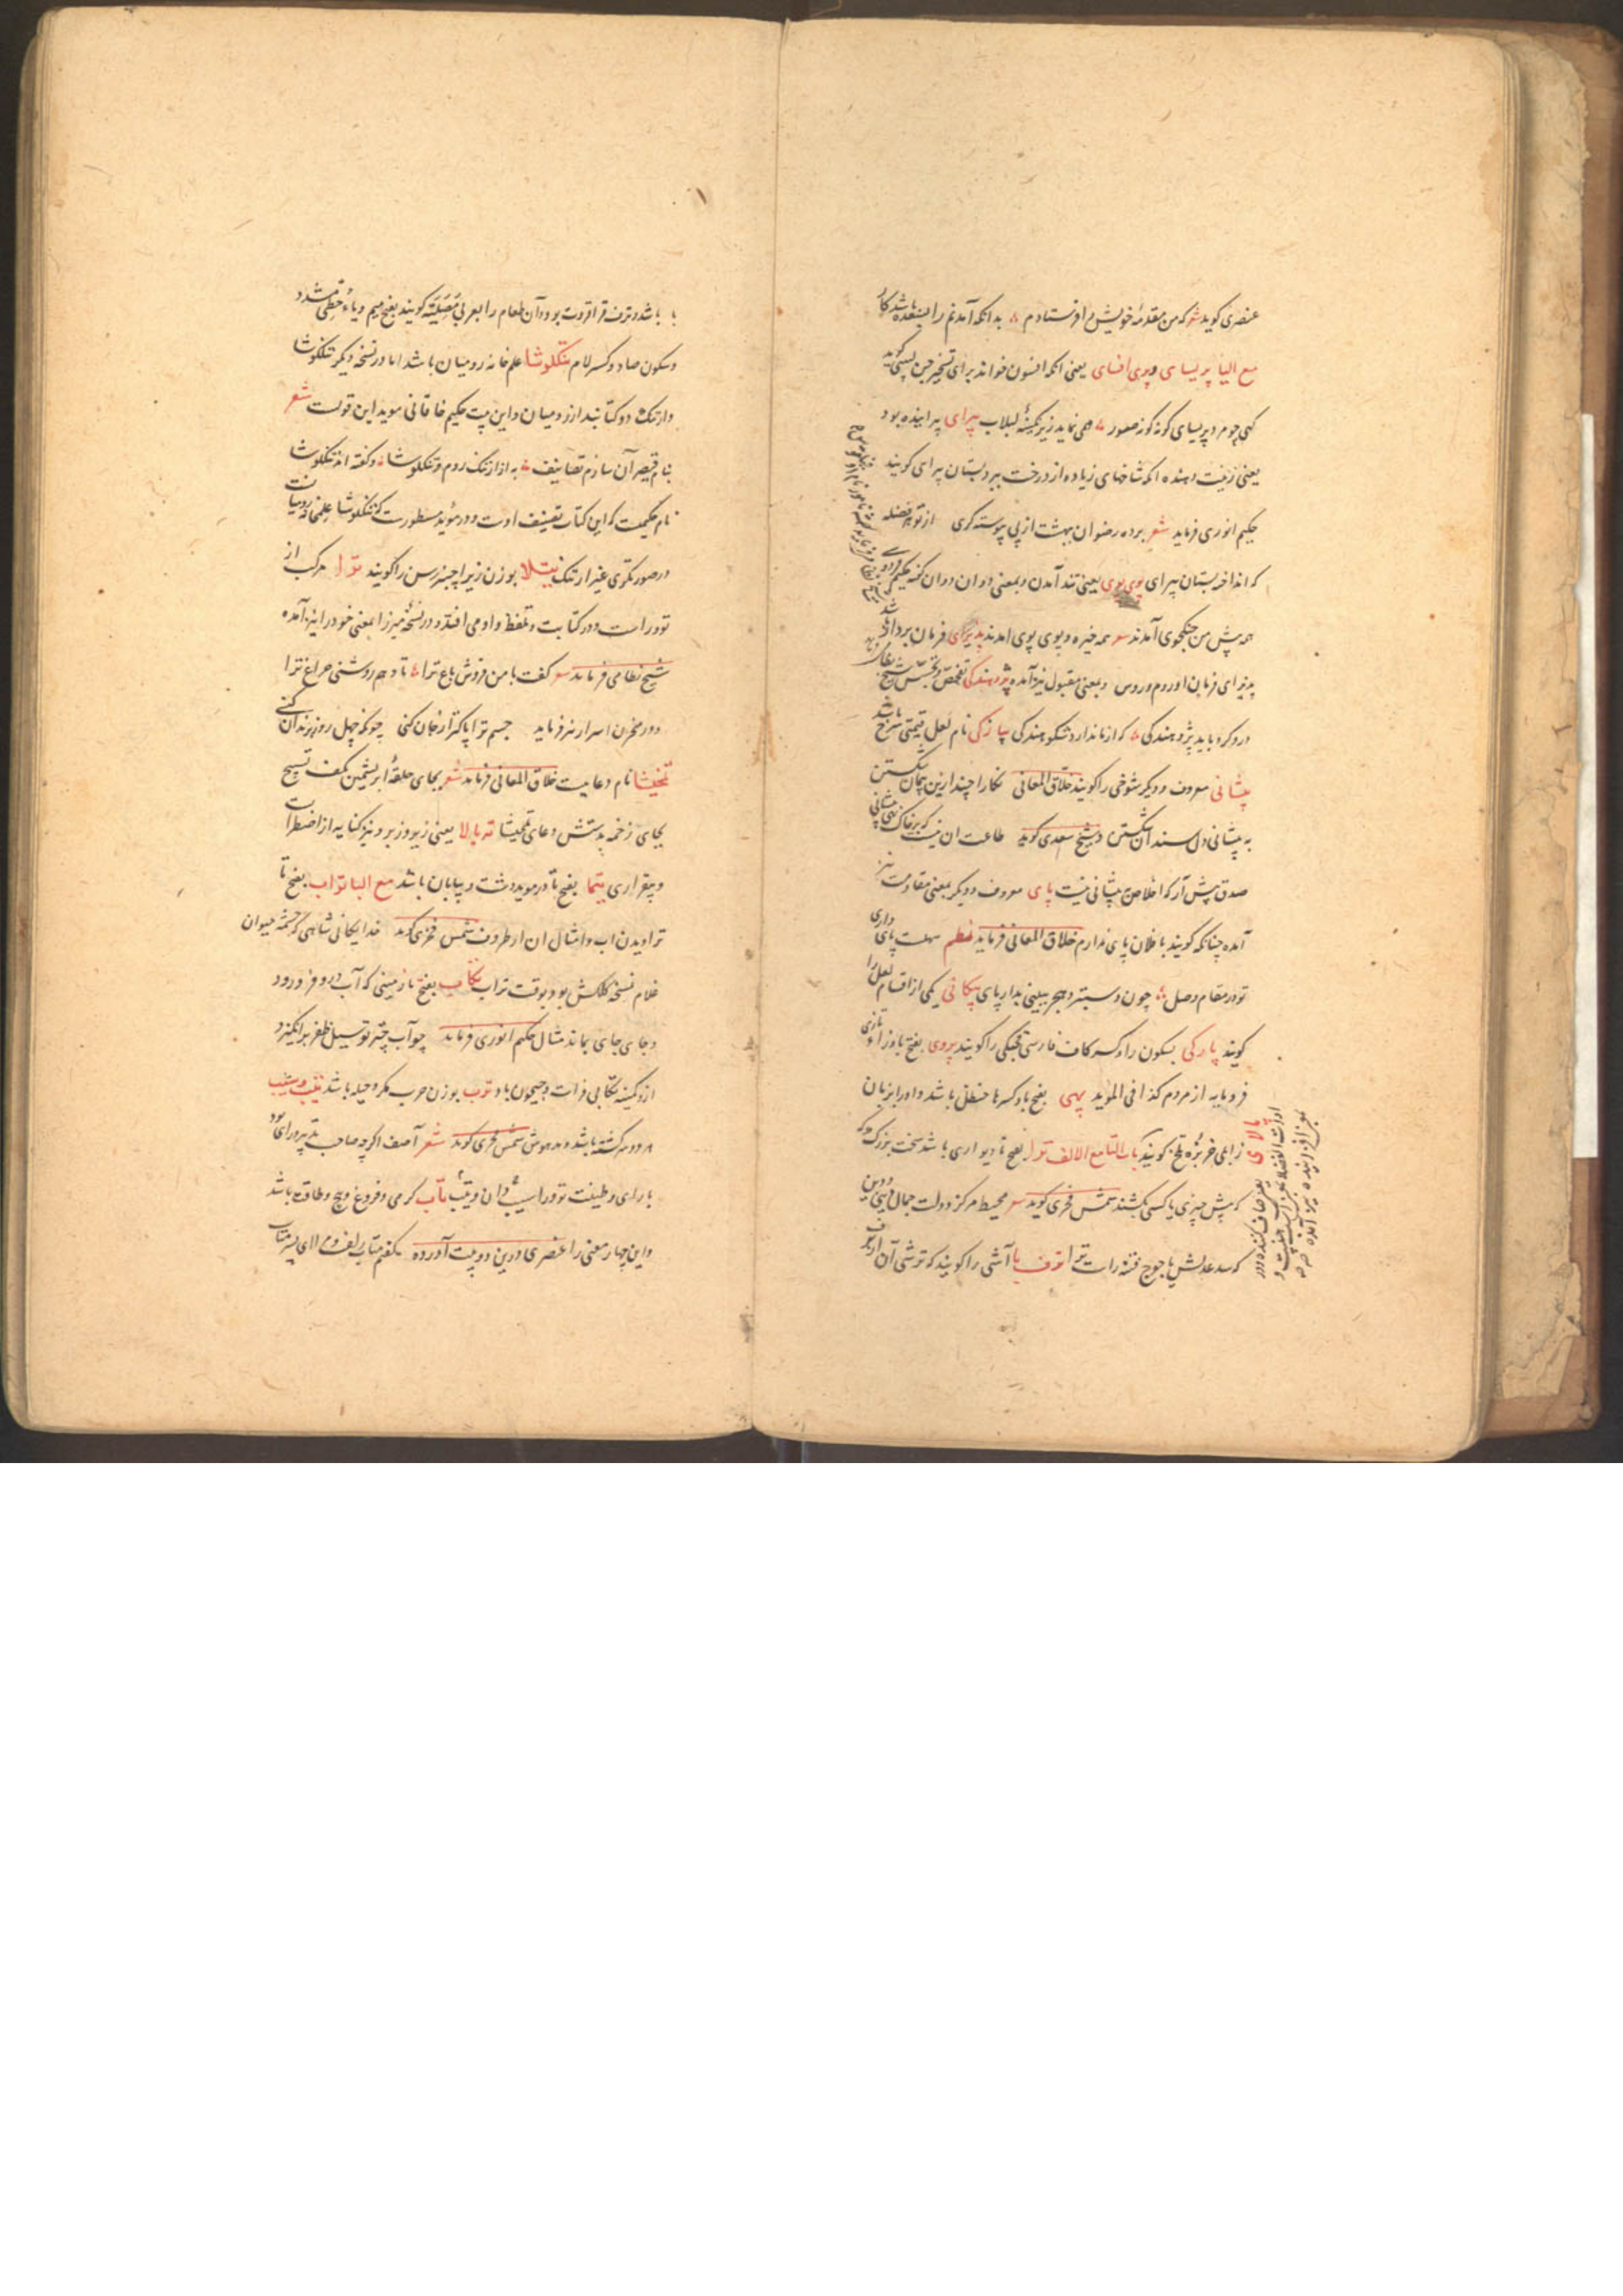 عنصری کوید شعر که من مقدمهٔ خویش را فرستادم به انکه آمدنم را بسنده باشد کار
مع الیا پریسای و پری افسای یعنی انکه افسون خواند برای تسخیر جن لبیبی کوید
کهی چو مرد پریسای کونه کونه صور همی نماید زیر نکینهٔ لبلاب پیرای پیراینده بود
یعنی زینت دهنده انکه شاخهای زیاده از درخت ببرد بستان پیرای کویند
حکیم انوری فرماید شعر برده رضوان بهشت از پی پیوسته کری از تو هر فضله
که انداخته بستان پیرای پوی پوی یعنی تند آمدن و بمعنی دوان دوان کفته حکیم فردوسی
همه پیش من جنکجوی آمدند همه خیره و پوی پوی امدند پذیرای فرمان بردار باشد
پذیرای فرمان او روم و روس و بمعنی مقبول نیز آمده پژوهندکی تفحص و تجسس شیخ نظامی
درو کرد باید پژوهندکی که از ما ندارد شکوهندکی پیازکی نام لعل قیمتی سرخ باشد
پیشانی معروف و دیکر شوخی را کویند خلاق المعانی نکارا چند ازین پیمان شکستن
به پیشانی دل سندان شکستن و شیخ سعدی کوید طاعت ان نیست که بر خاک نهی پیشانی
صدق پیش آر که اخلاص به پیشانی نیست پای معروف و دیکر بمعنی مقاومت نیز
آمده چنانکه کویند با فلان پای ندارم خلاق المعانی فرماید نظم سهلست پای داری
تو در مقام وصل چون دستبرد هجر ببینی بدار پای پیکانی یکی از اقسام لعل را
کویند پارکی بسکون را و کسر کاف فارسی قحبکی را کویند پروی بفتح با و زاء تازی
فرومایه از مردم کذا فی الموید پهی بفتح با و کسر ها حنظل باشد و او را بزبان
زابلی خربزهٔ تلخ کویند باب التا مع الالف ترا بفتح تا دیواری باشد سخت بزرک که
که پیش چیزی یا کسی بکشند شمس فخری کوید محیط مرکز دولت جمال دنیی و دین
که سد عدلش یاجوج فتنه را ست ترا ترف با آشی را کویند که ترشی آن از ترف
پالای
با باشد و ترف قراقروت بود و آن طعام را بعربی مصلیة کویند بفتح میم و یاء حطی مشدد
و سکون صاد و کسر لام تنکلوشا علم خانه رومیان باشد اما در نسخه دیکر تنکلوشا
و ارتنک دو کتابند از رومیان و این بیت حکیم خاقانی موید این قولست شعر
بنام قیصر آن سازم تصانیف به از ارتنک روم و تنکلوشا و کفته اند تنکلوشا
نام حکیمست که این کتاب تصنیف اوست و در موید مسطورست که تنکلوشا علمخانه رومیانست
در صورتکری غیر ارتنک تبتلا بوزن زیرا چنبر رسن را کویند ترا مرکب از
تو و راست و در کتابت و تلفظ واو می افتد و در نسخهٔ میرزا بمعنی خود را نیز آمده
شیخ نظامی فرماید کفت با من فروش باغ ترا تا دهم روشنی چراغ ترا
و در مخزن اسرار نیز فرماید جسم ترا پاکتر از جان کنی چونکه چهل روز بزندان کنی
تمخیشا نام دعاییست خلاق المعانی فرماید شعر بجای حلقهٔ ابریشمین بکف تسبیح
بجای زخمه بدستش دعای تمخیشا ته بالا یعنی زیر و زبر و نیز کنایه از اضطراب
و بیقراری تیما بفتح تا در موید دشت و بیابان باشد مع البا تراب بفتح تا
تراویدن اب و امثال ان از ظروف شمس فخری کوید خدایکانی شاهی که چشمه حیوان
غلام نسخهٔ کلکش بود بوقت تراب تکاب بفتح تا زمینی که آب درو فرو رود
و جای جای بماند مثال حکیم انوری فرماید چو آب چتر تو سیل ظفر برانکیزد
ازو کمینه تکابی فرات و جیحون باد ترب بوزن حرب مکر و حیله باشد تیب و شیب
در دو سرکشته باشد و مدهوش شمس فخری کوید شعر آصف اکر چه صاحب تدبیر و رای بود
با رای و طینت تو ورا سیب دان و تیب تاب کرمی و فروغ و پیچ و طاقت باشد
و این چهار معنی را عنصری درین دو بیت آورده بکفتم متاب زلف و مرا ای پسر متاب